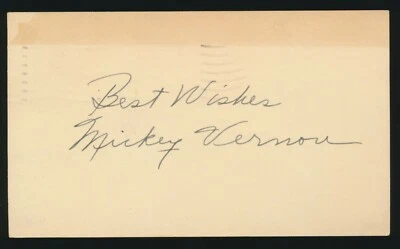 Best Wishes
Mickey Vernon